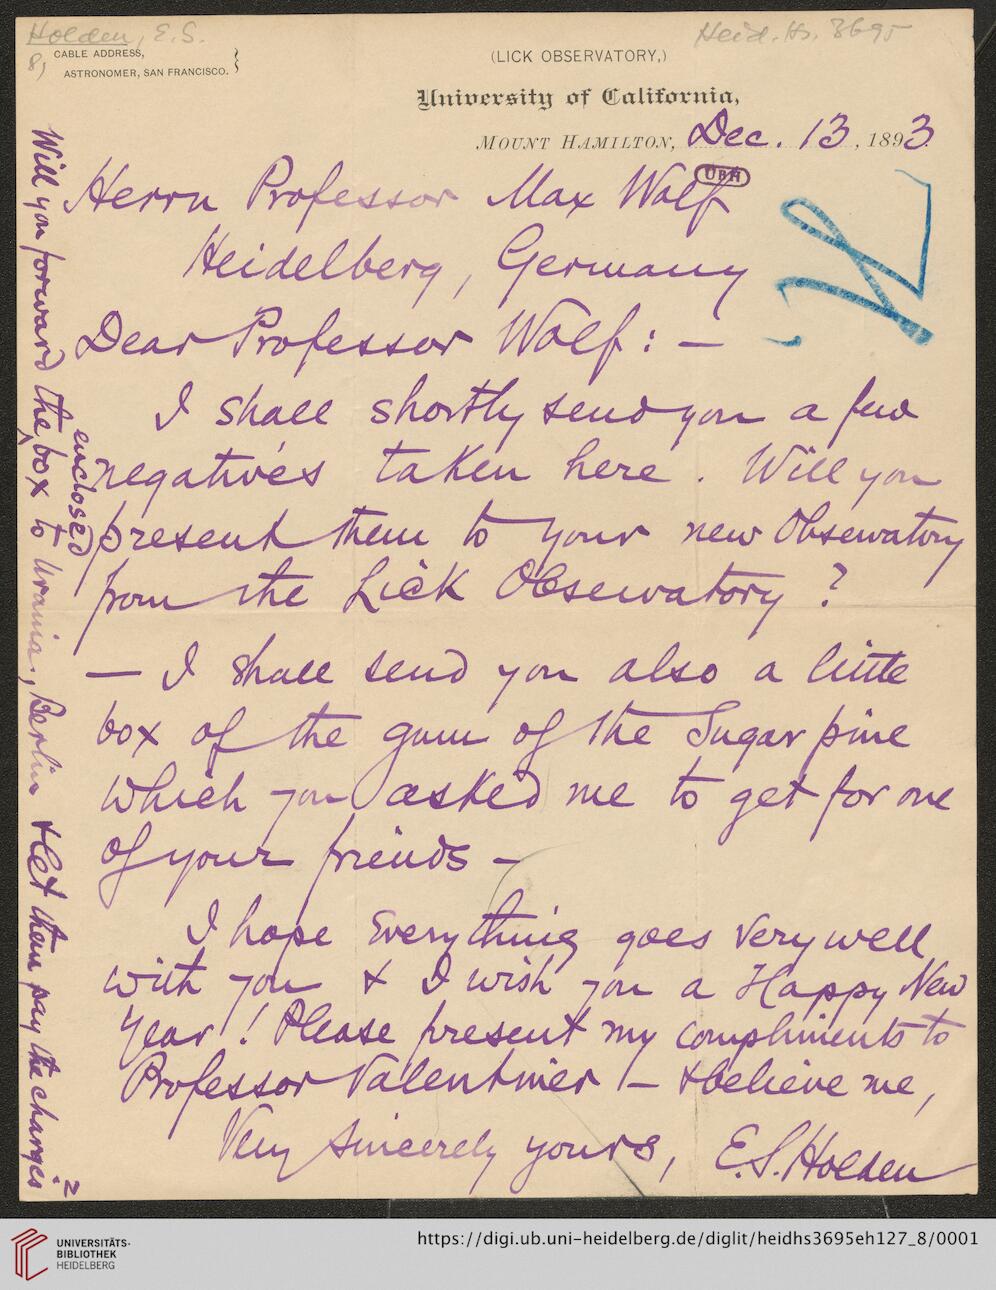 Holden, E.S.
8)
Heid. Hs. 3695
CABLE ADDRESS,
ASTRONOMER, SAN FRANCISCO.
(LICK OBSERVATORY,)
University of California,
MOUNT HAMILTON, Dec. 13, 1893.
UBH
Herrn Professor Max Wolf
Heidelberg, Germany
Dear Professor Wolf: —
I shall shortly send you a few
negatives taken here. Will you
present them to your new Observatory
from the Lick Observatory?
— I shall send you also a little
box of the gum of the Sugar pine
which you asked me to get for one
of your friends —
I hope Everything goes very well
with you & I wish you a Happy New
Year! Please present my compliments to
Professor Valentiner — & believe me,
Very Sincerely yours, E.S. Holden
Will you forward the enclosed box to Urania, Berlin & let them pay the charges?
UNIVERSITÄTS-
BIBLIOTHEK
HEIDELBERG
https://digi.ub.uni-heidelberg.de/diglit/heidhs3695eh127_8/0001